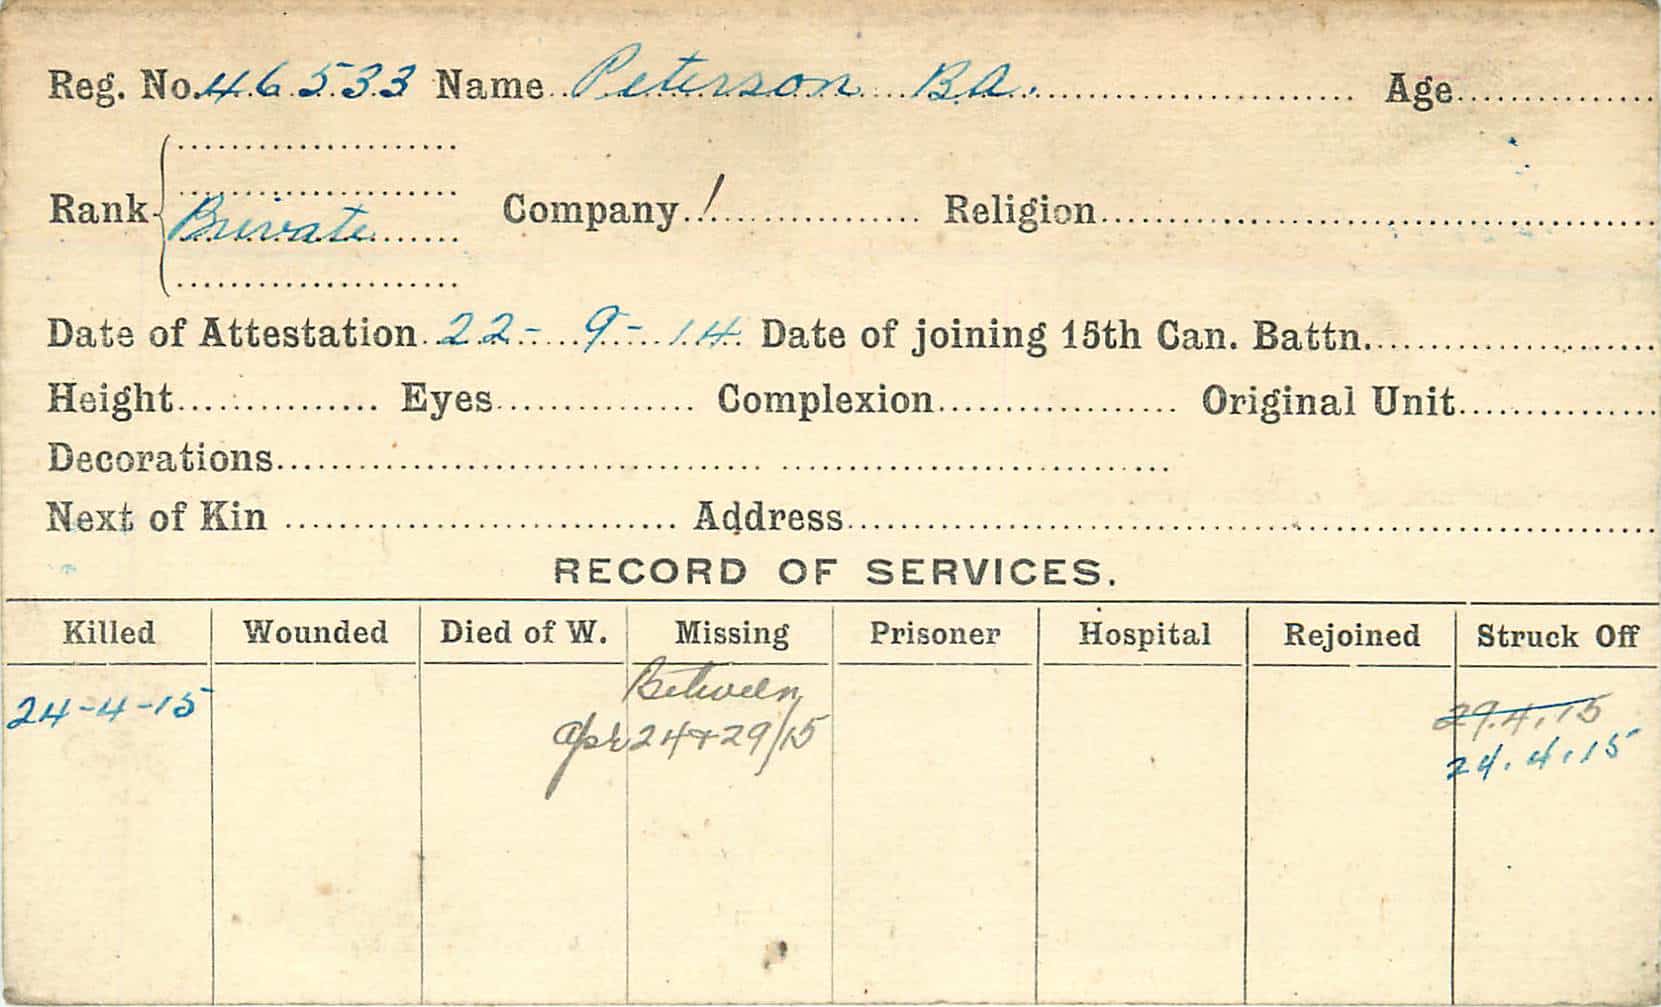 Reg. No. 46533 Name Peterson B.A. Age
Rank Private Company 1 Religion
Date of Attestation 22-9-14 Date of joining 15th Can. Battn.
Height Eyes Complexion Original Unit
Decorations
Next of Kin Address
RECORD OF SERVICES.
Killed Wounded Died of W. Missing Prisoner Hospital Rejoined Struck Off
24-4-15 Between Apr 24+29/15 29.4.15
24.4.15